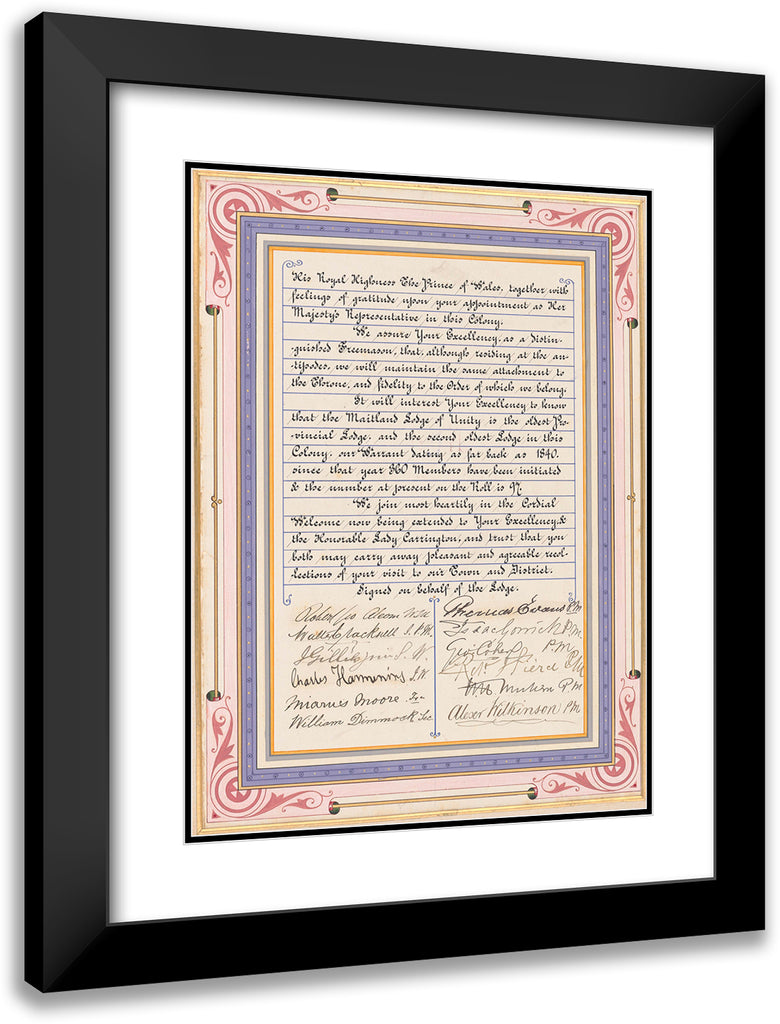 His Royal Highness The Prince of Wales, together with
feelings of gratitude upon your appointment as Her
Majesty's Representative in this Colony.
We assure Your Excellency, as a distin-
-guished Freemason, that, although residing at the an-
-tipodes, we will maintain the same attachment to
the Throne, and fidelity to the Order of which we belong.
It will interest Your Excellency to know
that the Maitland Lodge of Unity is the oldest Pro-
-vincial Lodge, and the second oldest Lodge in this
Colony, our Warrant dating as far back as 1840.
since that year 360 Members have been initiated
& the number at present on the Roll is 97.
We join most heartily in the Cordial
Welcome now being extended to Your Excellency, &
the Honorable Lady Carrington, and trust that you
both may carry away pleasant and agreeable recol-
-lections of your visit to our Town and District.
Signed on behalf of the Lodge.
Robert
Walter Cracknell I. P. M.
S. W.
Charles Hammening J. W.
Moore
William Dimmock Sec
Thomas Evans P.M.
Isaac Gorrick P.M.
Geo. Cohen P.M.
Pierce P.M.
P.M.
Alexr Wilkinson P.M.